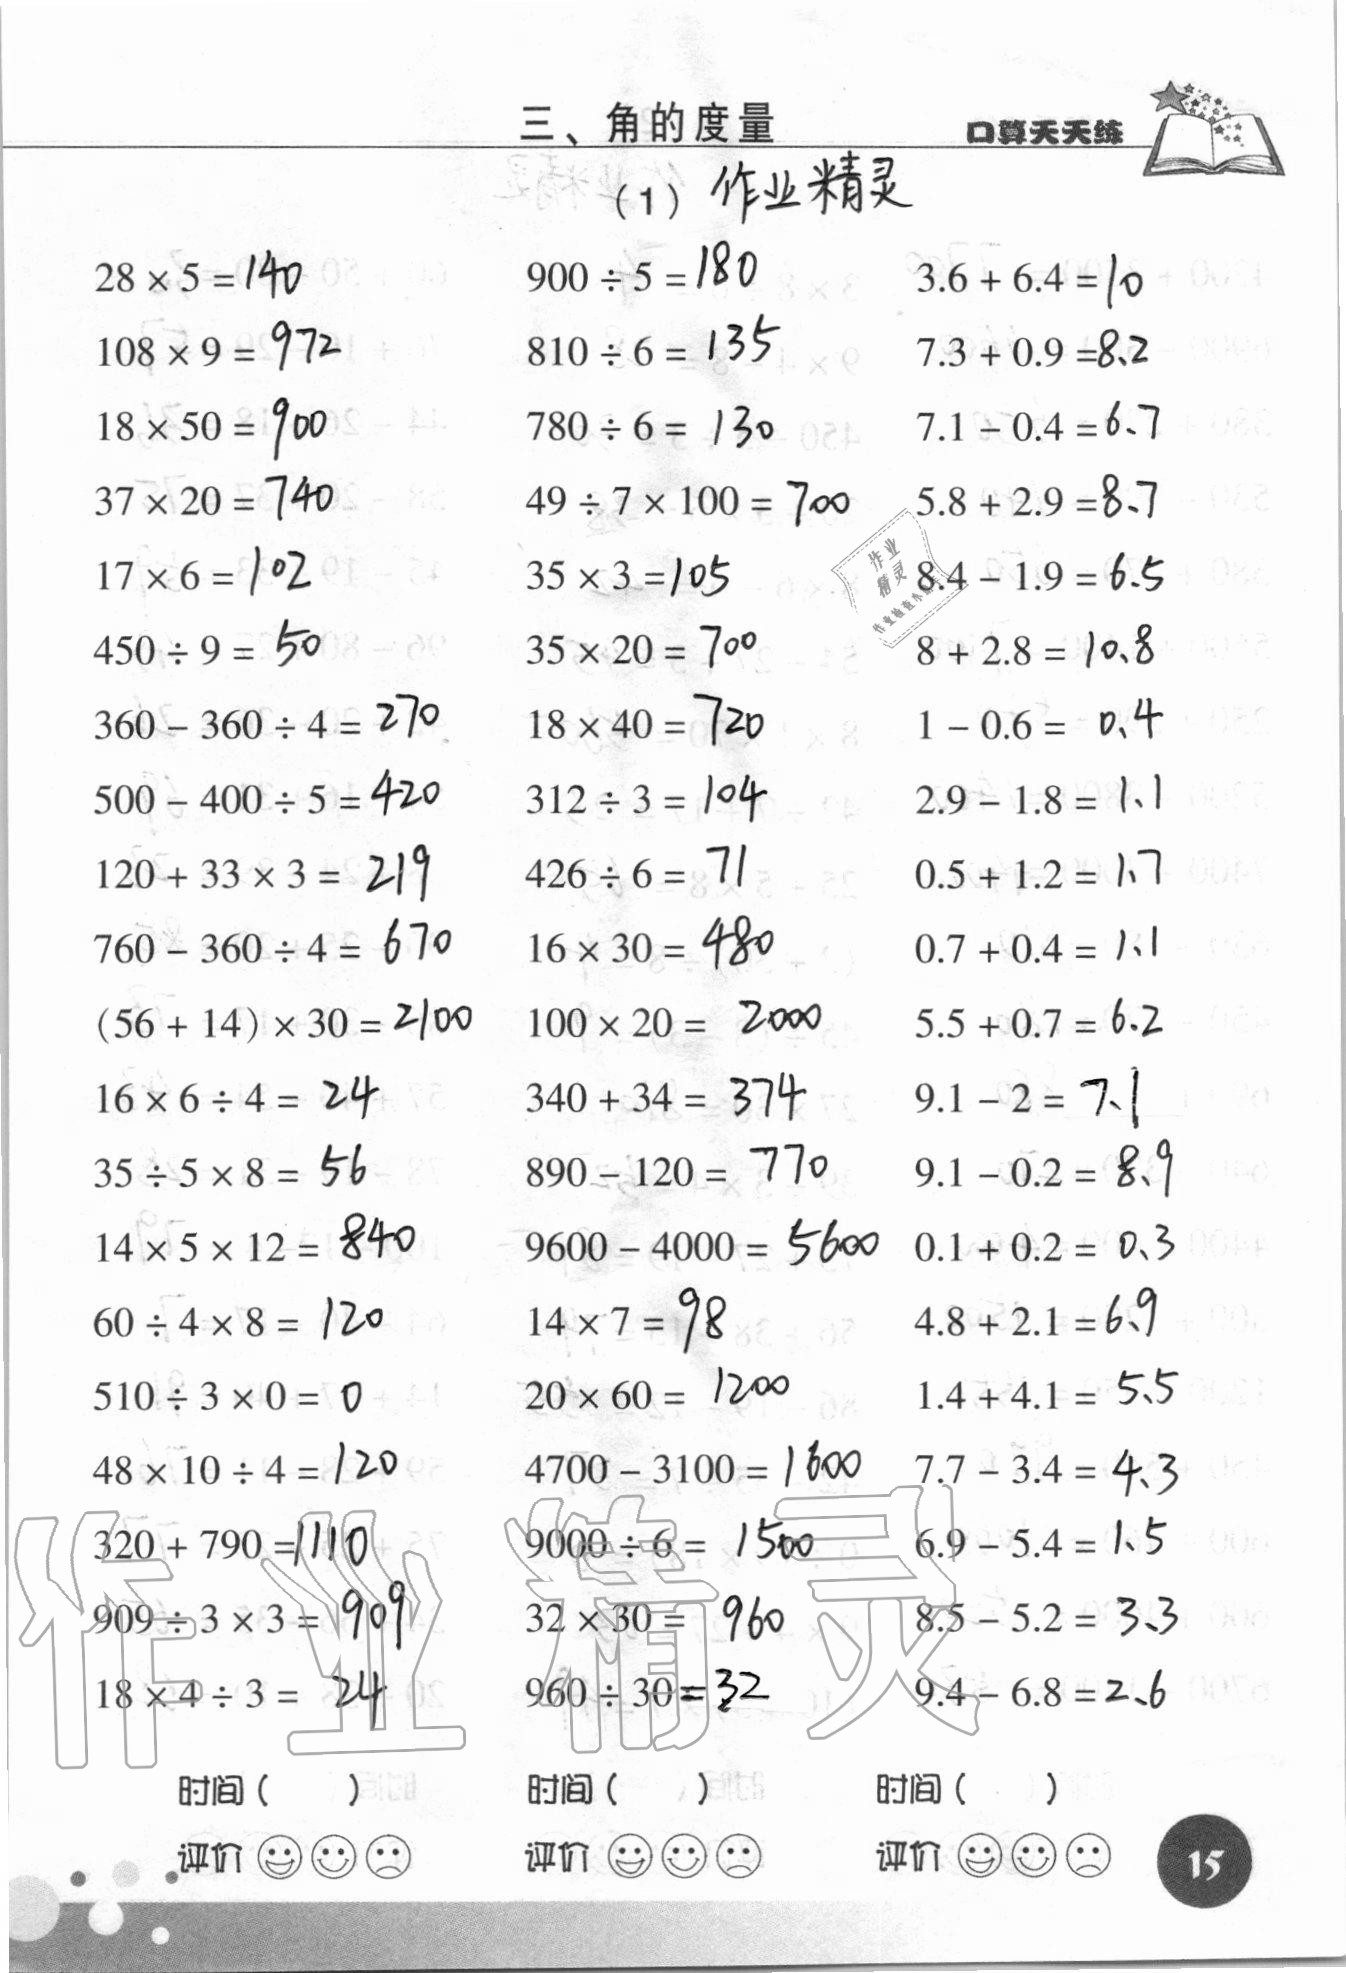 三、角的度量
口算天天练
(1) 作业精灵
28 × 5 = 140 900 ÷ 5 = 180 3.6 + 6.4 = 10
108 × 9 = 972 810 ÷ 6 = 135 7.3 + 0.9 = 8.2
18 × 50 = 900 780 ÷ 6 = 130 7.1 − 0.4 = 6.7
37 × 20 = 740 49 ÷ 7 × 100 = 700 5.8 + 2.9 = 8.7
17 × 6 = 102 35 × 3 = 105 8.4 − 1.9 = 6.5
450 ÷ 9 = 50 35 × 20 = 700 8 + 2.8 = 10.8
360 − 360 ÷ 4 = 270 18 × 40 = 720 1 − 0.6 = 0.4
500 − 400 ÷ 5 = 420 312 ÷ 3 = 104 2.9 − 1.8 = 1.1
120 + 33 × 3 = 219 426 ÷ 6 = 71 0.5 + 1.2 = 1.7
760 − 360 ÷ 4 = 670 16 × 30 = 480 0.7 + 0.4 = 1.1
(56 + 14) × 30 = 2100 100 × 20 = 2000 5.5 + 0.7 = 6.2
16 × 6 ÷ 4 = 24 340 + 34 = 374 9.1 − 2 = 7.1
35 ÷ 5 × 8 = 56 890 − 120 = 770 9.1 − 0.2 = 8.9
14 × 5 × 12 = 840 9600 − 4000 = 5600 0.1 + 0.2 = 0.3
60 ÷ 4 × 8 = 120 14 × 7 = 98 4.8 + 2.1 = 6.9
510 ÷ 3 × 0 = 0 20 × 60 = 1200 1.4 + 4.1 = 5.5
48 × 10 ÷ 4 = 120 4700 − 3100 = 1600 7.7 − 3.4 = 4.3
320 + 790 = 1110 9000 ÷ 6 = 1500 6.9 − 5.4 = 1.5
909 ÷ 3 × 3 = 909 32 × 30 = 960 8.5 − 5.2 = 3.3
18 × 4 ÷ 3 = 24 960 ÷ 30 = 32 9.4 − 6.8 = 2.6
作业精灵
作业
精灵
时间 ( ) 时间 ( ) 时间 ( )
评价 评价 评价
15